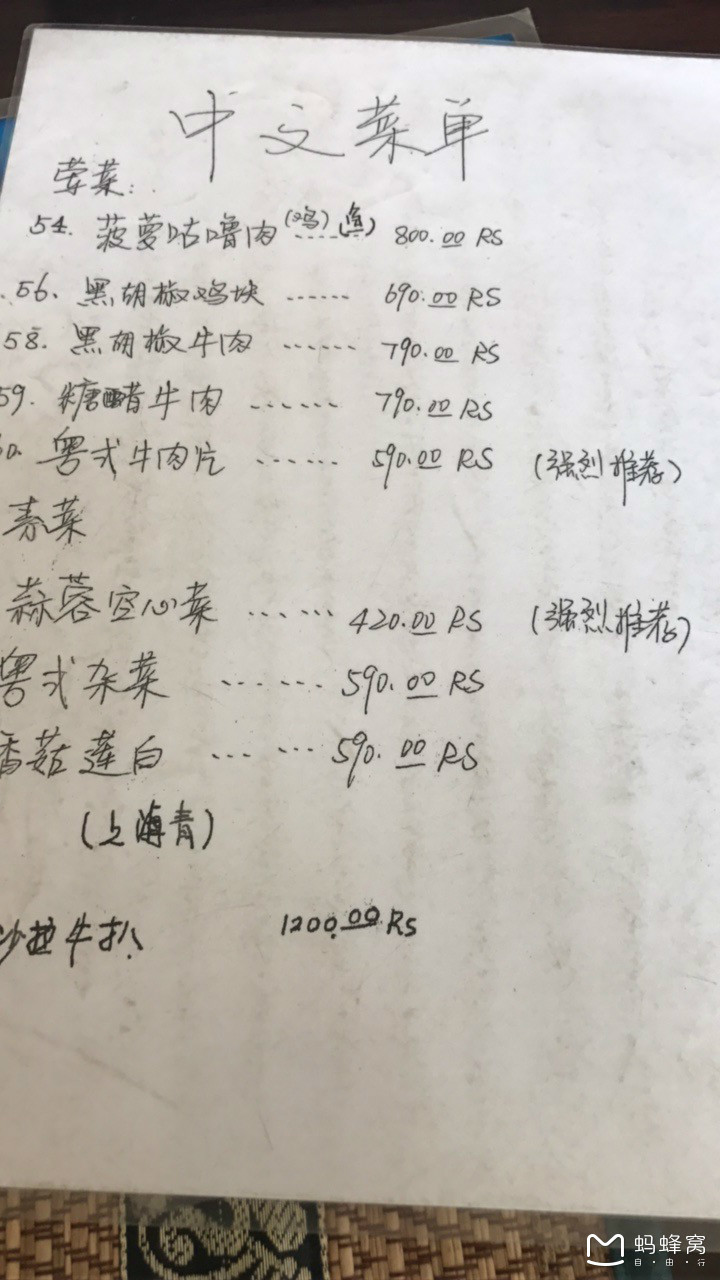 中文菜单
荤菜:
54. 菠萝咕噜肉(鸡)(鱼) 800.00 RS
56. 黑胡椒鸡块 ...... 690.00 RS
58. 黑胡椒牛肉 ...... 790.00 RS
59. 糖醋牛肉 ...... 790.00 RS
0. 粤式牛肉片 ...... 590.00 RS (强烈推荐)
素菜
蒜蓉空心菜 ...... 420.00 RS (强烈推荐)
粤式杂菜 ...... 590.00 RS
香菇莲白 ...... 590.00 RS
(上海青)
沙拉牛扒 1200.00 RS
蚂蜂窝
自·由·行